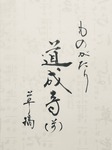 ものがたり
道成寺(三)
草璃